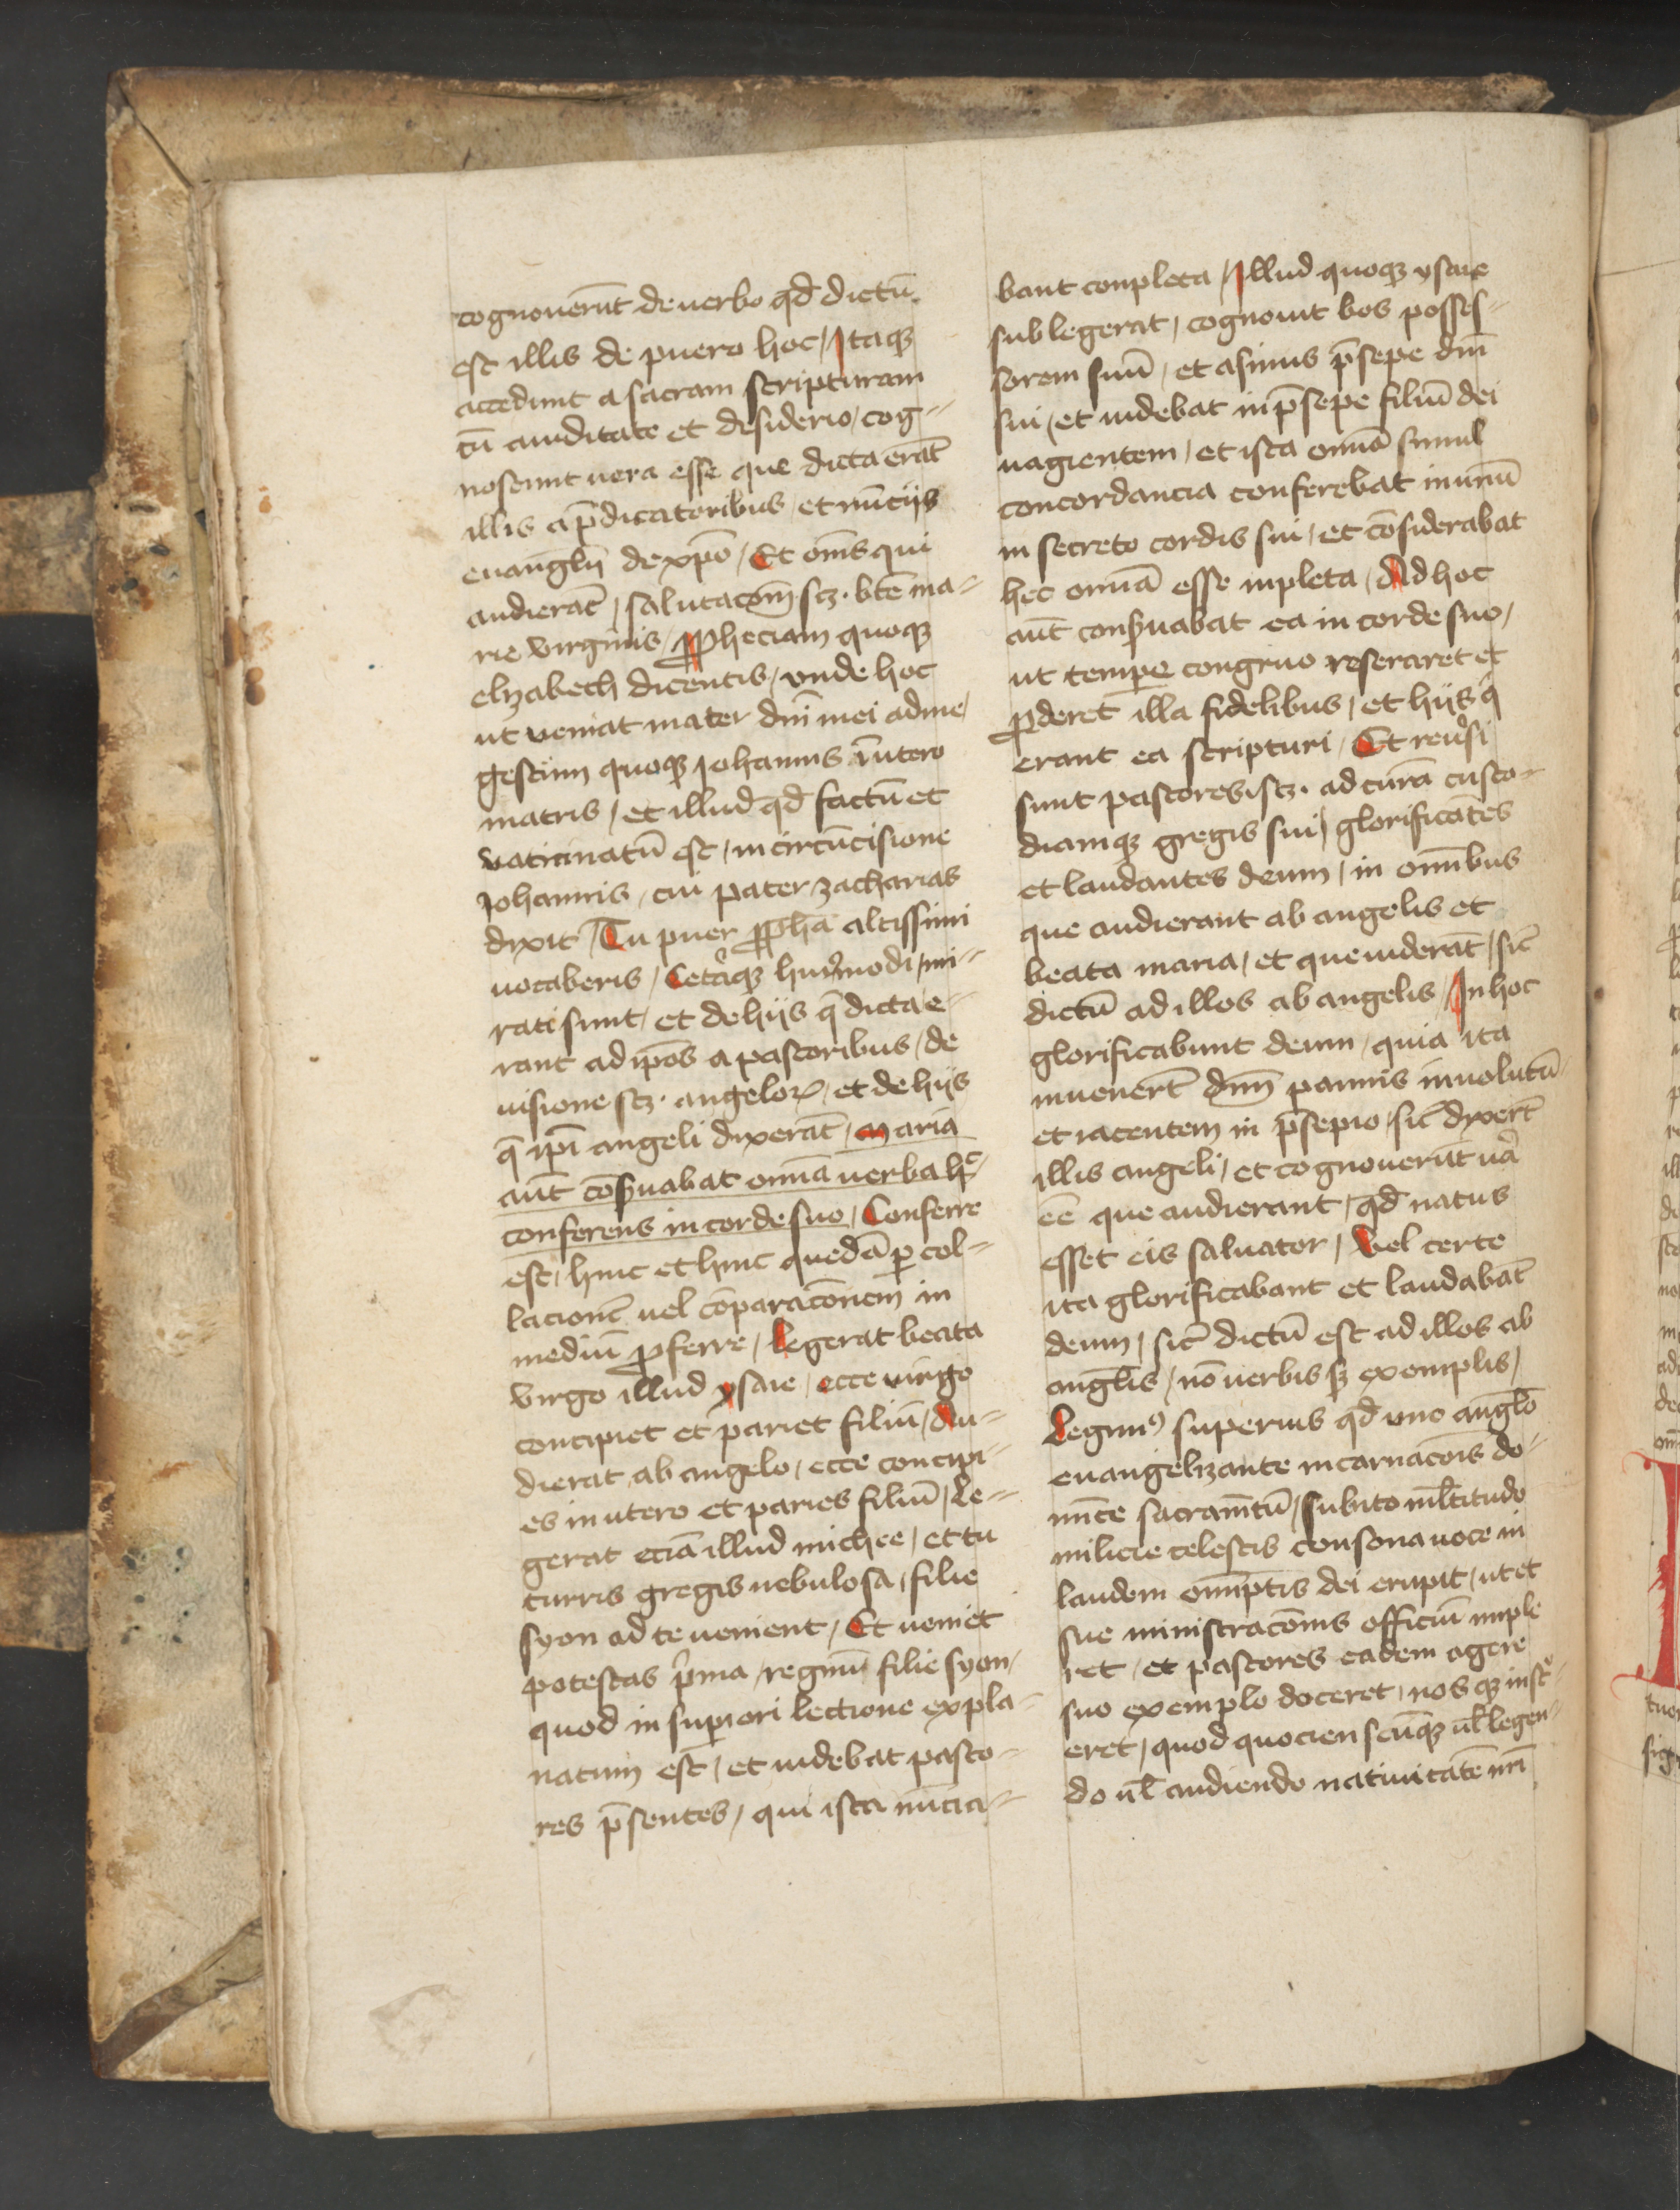 cognouerūt de uerbo qd̄ dictū
est illis de puero hoc / Itaqꝫ
accedunt a sacram scripturam
cū auiditate et desiderio / cog-
noscunt uera esse que dicta erāt
illis a p̄dicatoribus / et nūciis
euangl̄ij de xpō / Et om̄s qui
audierāt / salutacōm̄ scꝫ · btē ma-
rie virginis / ꝓpheciam quoqꝫ
elyzabeth dicentis / vnde hoc
ut ueniat mater dn̄i mei ad me /
gestum quoqꝫ Johannis ī utero
matris / et illud qd̄ factū et
vaticinatū est / in circūcisione
Johannis / cui pater zacharias
dixit / Tu puer ꝓpha altissimi
uocaberis / Cetāqꝫ huiꝰmodi / mi-
rati sunt / et de hijs q̄ dicta e-
rant ad ip̄os a pastoribus / de
uisione scꝫ · angeloꝝ / et de hijs
q̄ ip̄i angeli dixerāt / maria
aūt cōẜuabat omīa uerba hͨ /
conferens in corde suo / Conferre
est / hinc et hinc quedā ꝑ col-
lacionē uel cōparacōnem in
mediū ꝓferre / Legerat beata
virgo illud ysaie / ecce uirgo
concipiet et pariet filiū / Au-
dierat ab angelo / ecce concipi-
es in utero et paries filiū / Le-
gerat eciā illud michee / et tu
turris gregis nebulosa / filie
syon ad te uenient / Et ueniet
potestas p̄ma / regnū filie syon /
quod in suꝑiori lectione expla-
natum est / et uidebat pasto-
res p̄sentes / qui ista nūcia-
bant conpleta / Illud quoqꝫ ysaie
sublegerat / cognouit bos posses-
sorem suū / et asinus p̄sepe dn̄i
sui / et uidebat in p̄sepe filiū dei
uagientem / et ista omīa simul
concordancia conferebat in unū
in secreto cordis sui / et cōsiderabat
hec omīa esse inpleta / Ad hoc
aūt conẜuabat ea in corde suo /
ut tempe congruo reseraret et
ꝓderet illa fidelibus / et hijs q̄
erant ea scripturi / Et reuersi
sunt pastores / scꝫ · ad curā custo-
diamqꝫ gregis sui / glorificātes
et laudantes deum / in omībus
que audierant ab angelis et
beata maria / et que uiderāt / sic̄
dictū ad illos ab angelis / In hoc
glorificabunt deum / quia ita
inuenert̄ dnm̄ pannis inuolutū
et iacentem in p̄sepio / sic̄ dixert̄
illis angeli / et cognouerūt uā
eē que audierant / qd̄ natus
esset eis saluator / Vel certe
ita glorificabant et laudabāt
deum / sic̄ dictū est ad illos ab
angl̄is / nō uerbis sꝫ exemplis /
Legimꝰ superius qd̄ uno angl̄o
euangelizante incarnacōis do-
mīce sacram̄tū / subito ml̄titudo
milicie celestis consona uoce in
laudem omīptis dei erupit / ut et
sue ministracōnis officiū imple
ret / et pastores eadem agere
suo exemplo doceret / nosqꝫ inst̄-
eret / quod quociens cūqꝫ ul̄ legen-
do ul̄ audiendo natiuitatē nr̄i